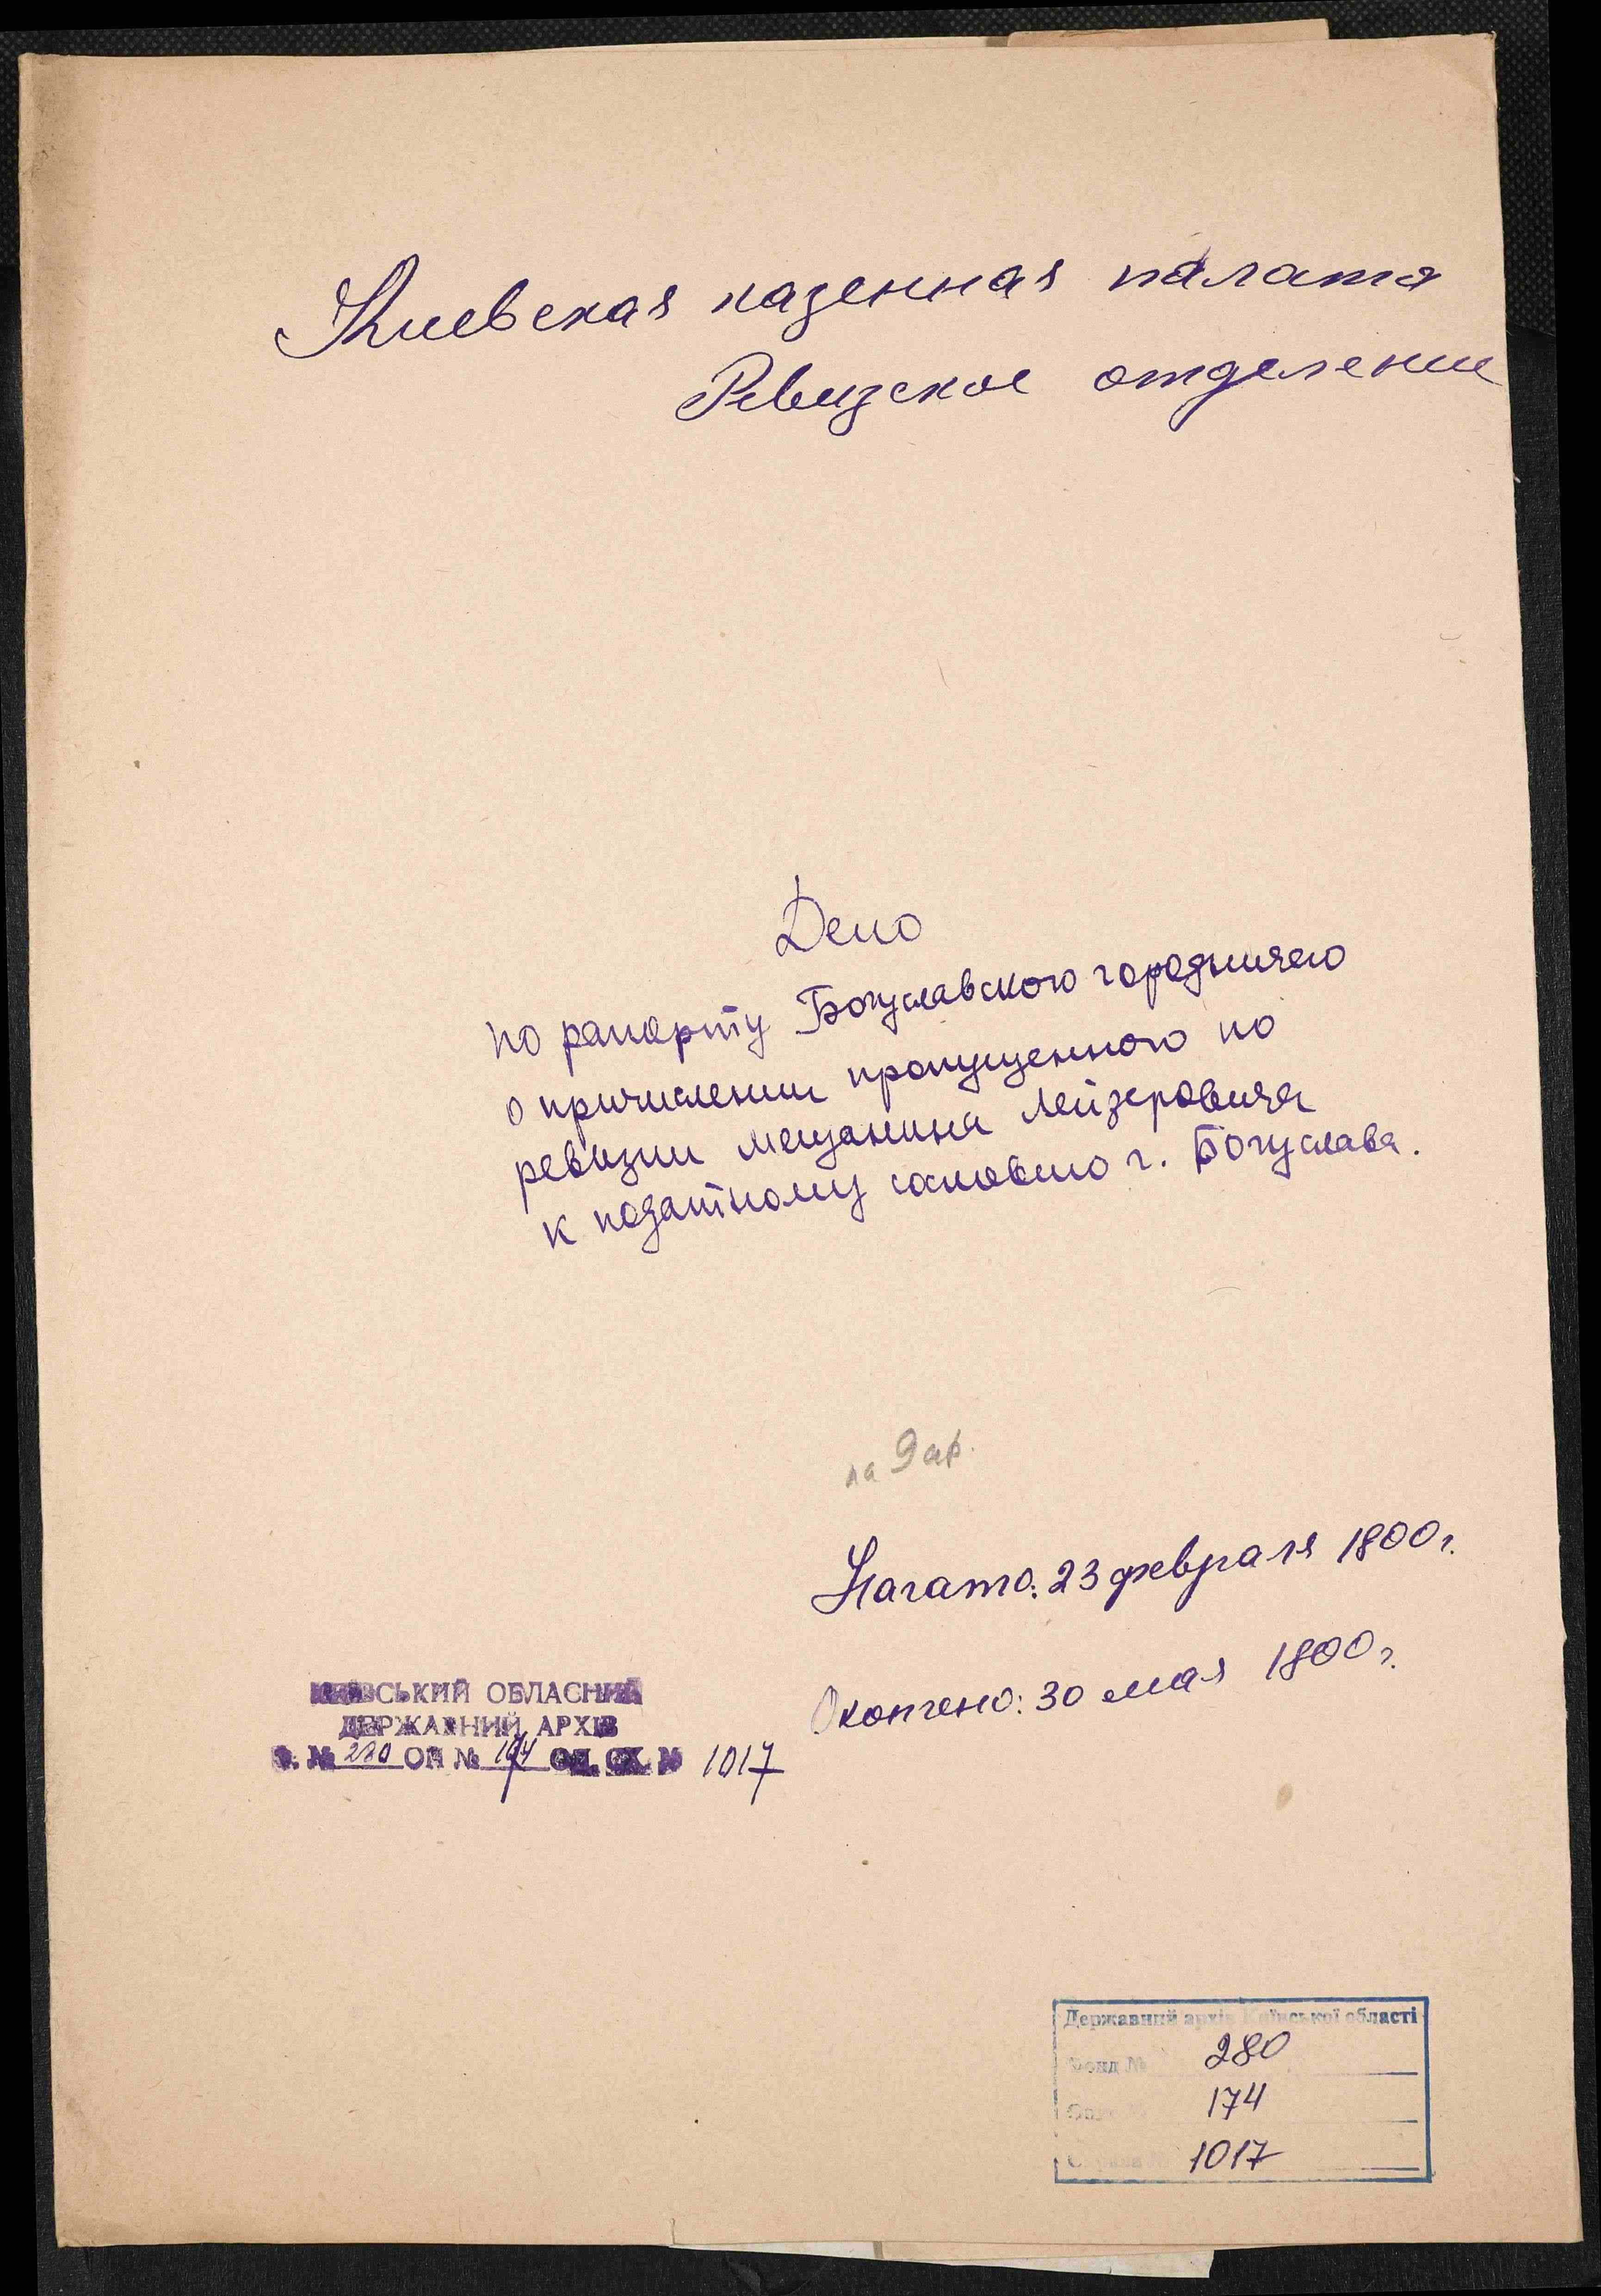 Киевская казенная палата
Ревизское отделение
Дело
по рапорту Богуславского городничего
о причислении пропущенного по
ревизии мещанина Лейзеровича
к податному сословию г. Богуслава.
на 9 арк.
Начато: 23 февраля 1800 г.
Окончено: 30 мая 1800 г.
КИЇВСЬКИЙ ОБЛАСНИЙ
ДЕРЖАВНИЙ АРХІВ
Ф. № 280 ОП № 174 ОД. ЗХ. № 1017
Державний архів Київської області
Фонд № 280
Опис № 174
Справа № 1017